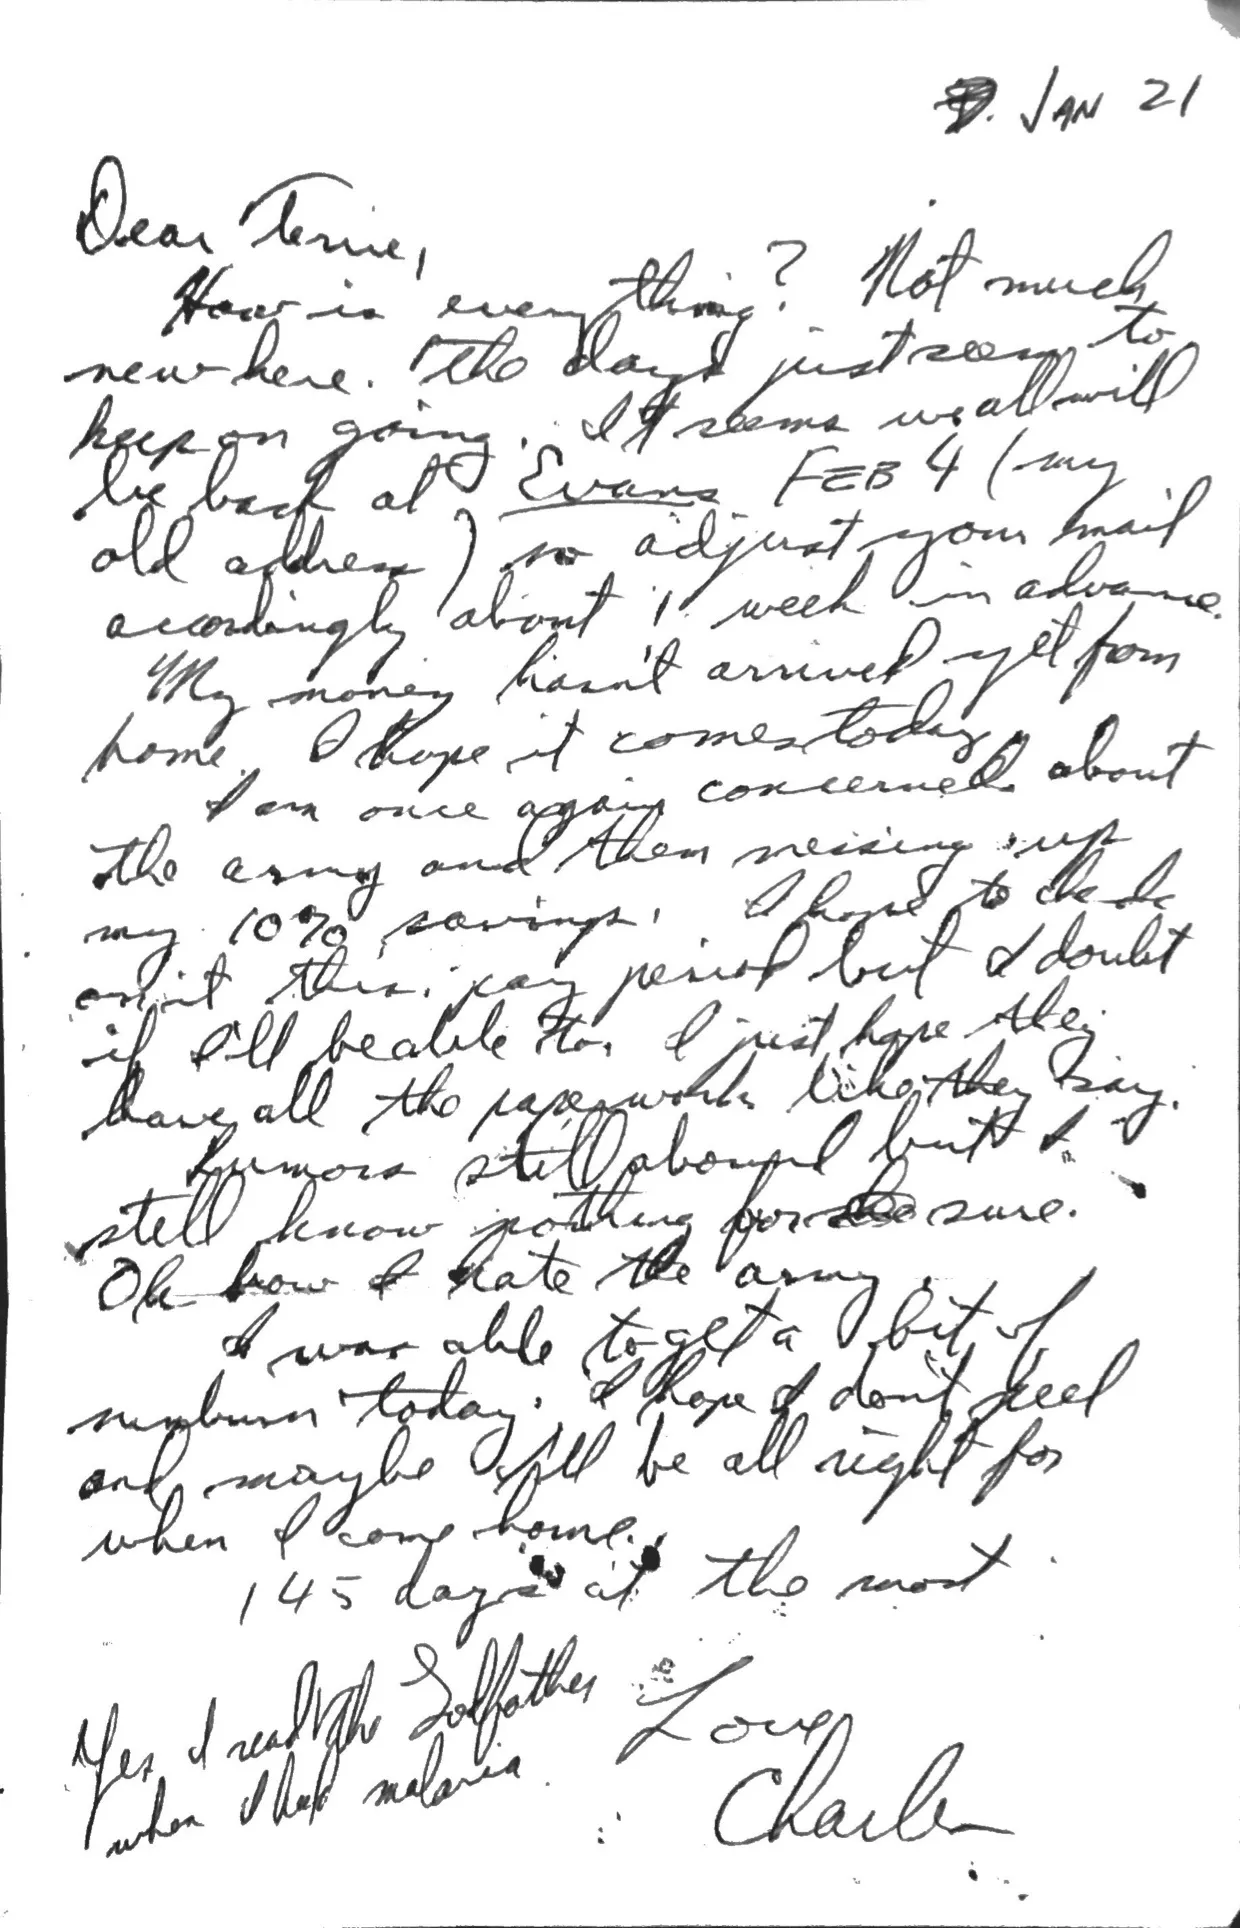 JAN 21
Dear Terrie,
How is everything? Not much
new here. The days just seem to
keep on going. It seems we all will
be back at Evans FEB 4 (my
old address) so adjust your mail
accordingly about 1 week in advance.
My money hasn't arrived yet from
home. I hope it comes today.
I am once again concerned about
the army and them messing up
my 10% savings. I hope to check
on it this pay period but I doubt
if I'll be able to. I just hope they
have all the paperwork like they say.
Rumors still abound but I
still know nothing for sure.
Oh how I hate the army.
I was able to get a bit of
sunburn today. I hope I don't peel
and maybe I'll be all right for
when I come home.
145 days at the most
Love
Charles
Yes I read the Godfather
when I had malaria